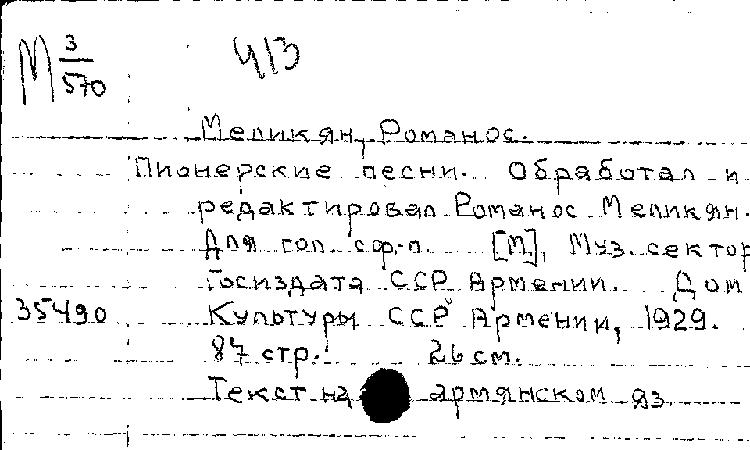 М 3/570
Меликян, Романос.
Пионерские песни. Обработал и
редактировал Романос Меликян.
Для гол. с ф.-п. [М.], Муз. сектор
Госиздата ССР Армении. Дом
35490 Культуры ССР Армении, 1929.
87 стр. 26 см.
Текст на армянском яз.